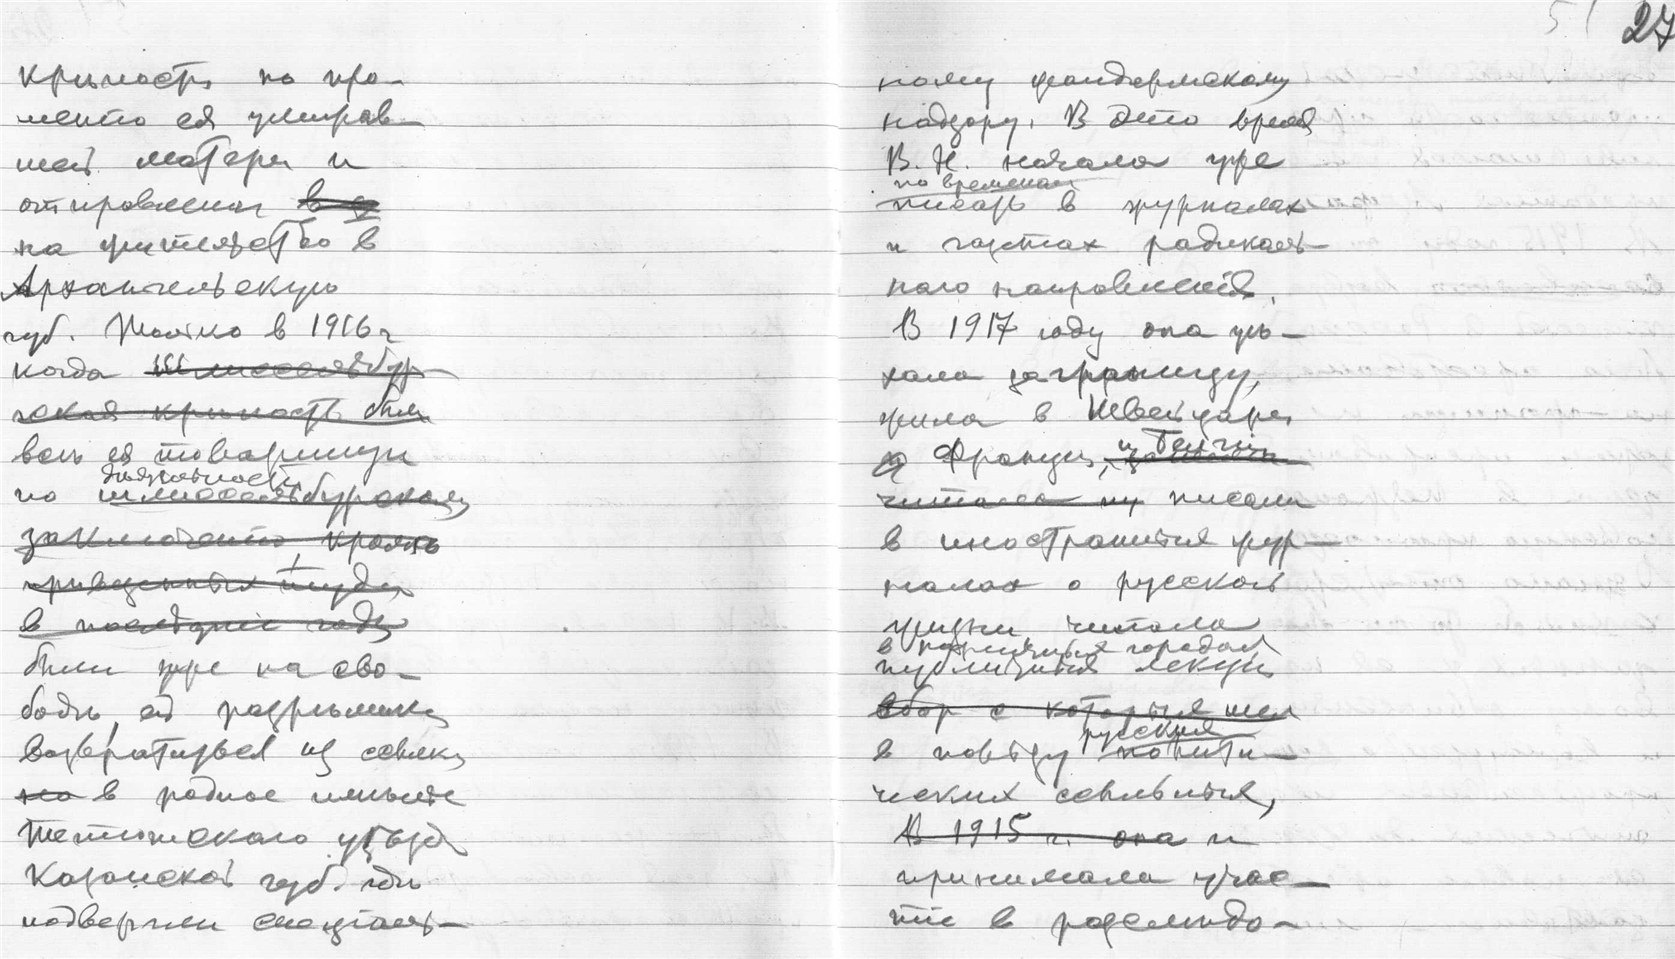 крѣпость по про-
шенію ея умирав-
шей матери и
отправлена в
на жительство в
Архангельскую
губ. Только в 1916 г
когда Шлиссельбур
гская крѣпость были
всѣ ея товарищи
по шлиссельбургскому
заключенію, кромѣ
приведенных туда
в послѣдніе годы
были уже на сво-
бодѣ, ей разрѣшили
возвратиться из ссылки
но в родное имѣнье
Тетюшского уѣзда
Казанской губ. гдѣ
подвергли спеціаль-
51 27
ному жандармскому
надзору. В это время
В. Н. начала уже
по временам
писать в журналах
и газетах радикаль-
наго направленія.
В 1917 году она уѣ-
хала заграницу,
жила в Швейцаріи,
Франціи, и Бельгіи
читала писала
в иностранных жур-
налах о русской
жизни читала
в различных городах
публичныя лекціи
сбор с которых шел
русских
в пользу полити-
ческих ссыльных,
В 1915 г. она и
принимала учас-
тіе в